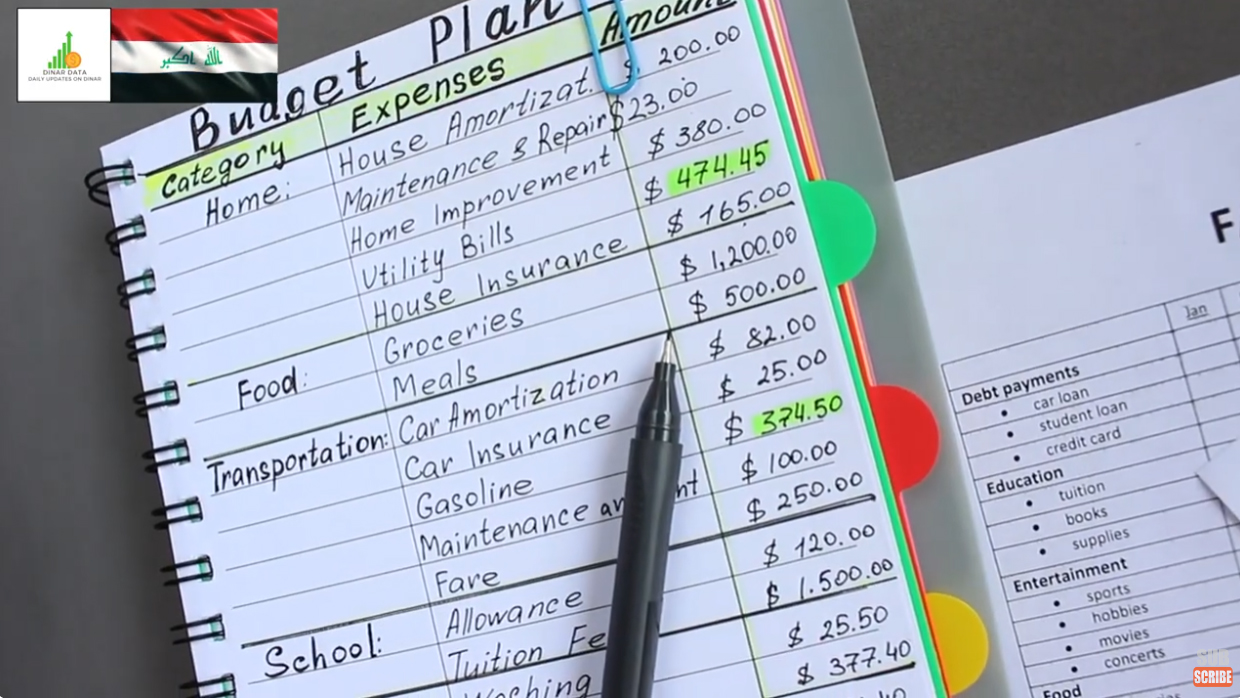 DINAR DATA
DAILY UPDATES ON DINAR
الله اكبر
Budget Plan
Category Expenses Amount
Home: House Amortizat. $ 200.00
Maintenance & Repair $23.00
Home Improvement $ 380.00
Utility Bills $ 474.45
House Insurance $ 165.00
Food: Groceries $ 1,200.00
Meals $ 500.00
Transportation: Car Amortization $ 82.00
Car Insurance $ 25.00
Gasoline $ 374.50
Maintenance $ 100.00
Fare $ 250.00
School: Allowance $ 120.00
Tuition Fe $ 1.500.00
$ 25.50
$ 377.40
Jan
Debt payments
• car loan
• student loan
• credit card
Education
• tuition
• books
• supplies
Entertainment
• sports
• hobbies
• movies
• concerts
Food
SUB
SCRIBE